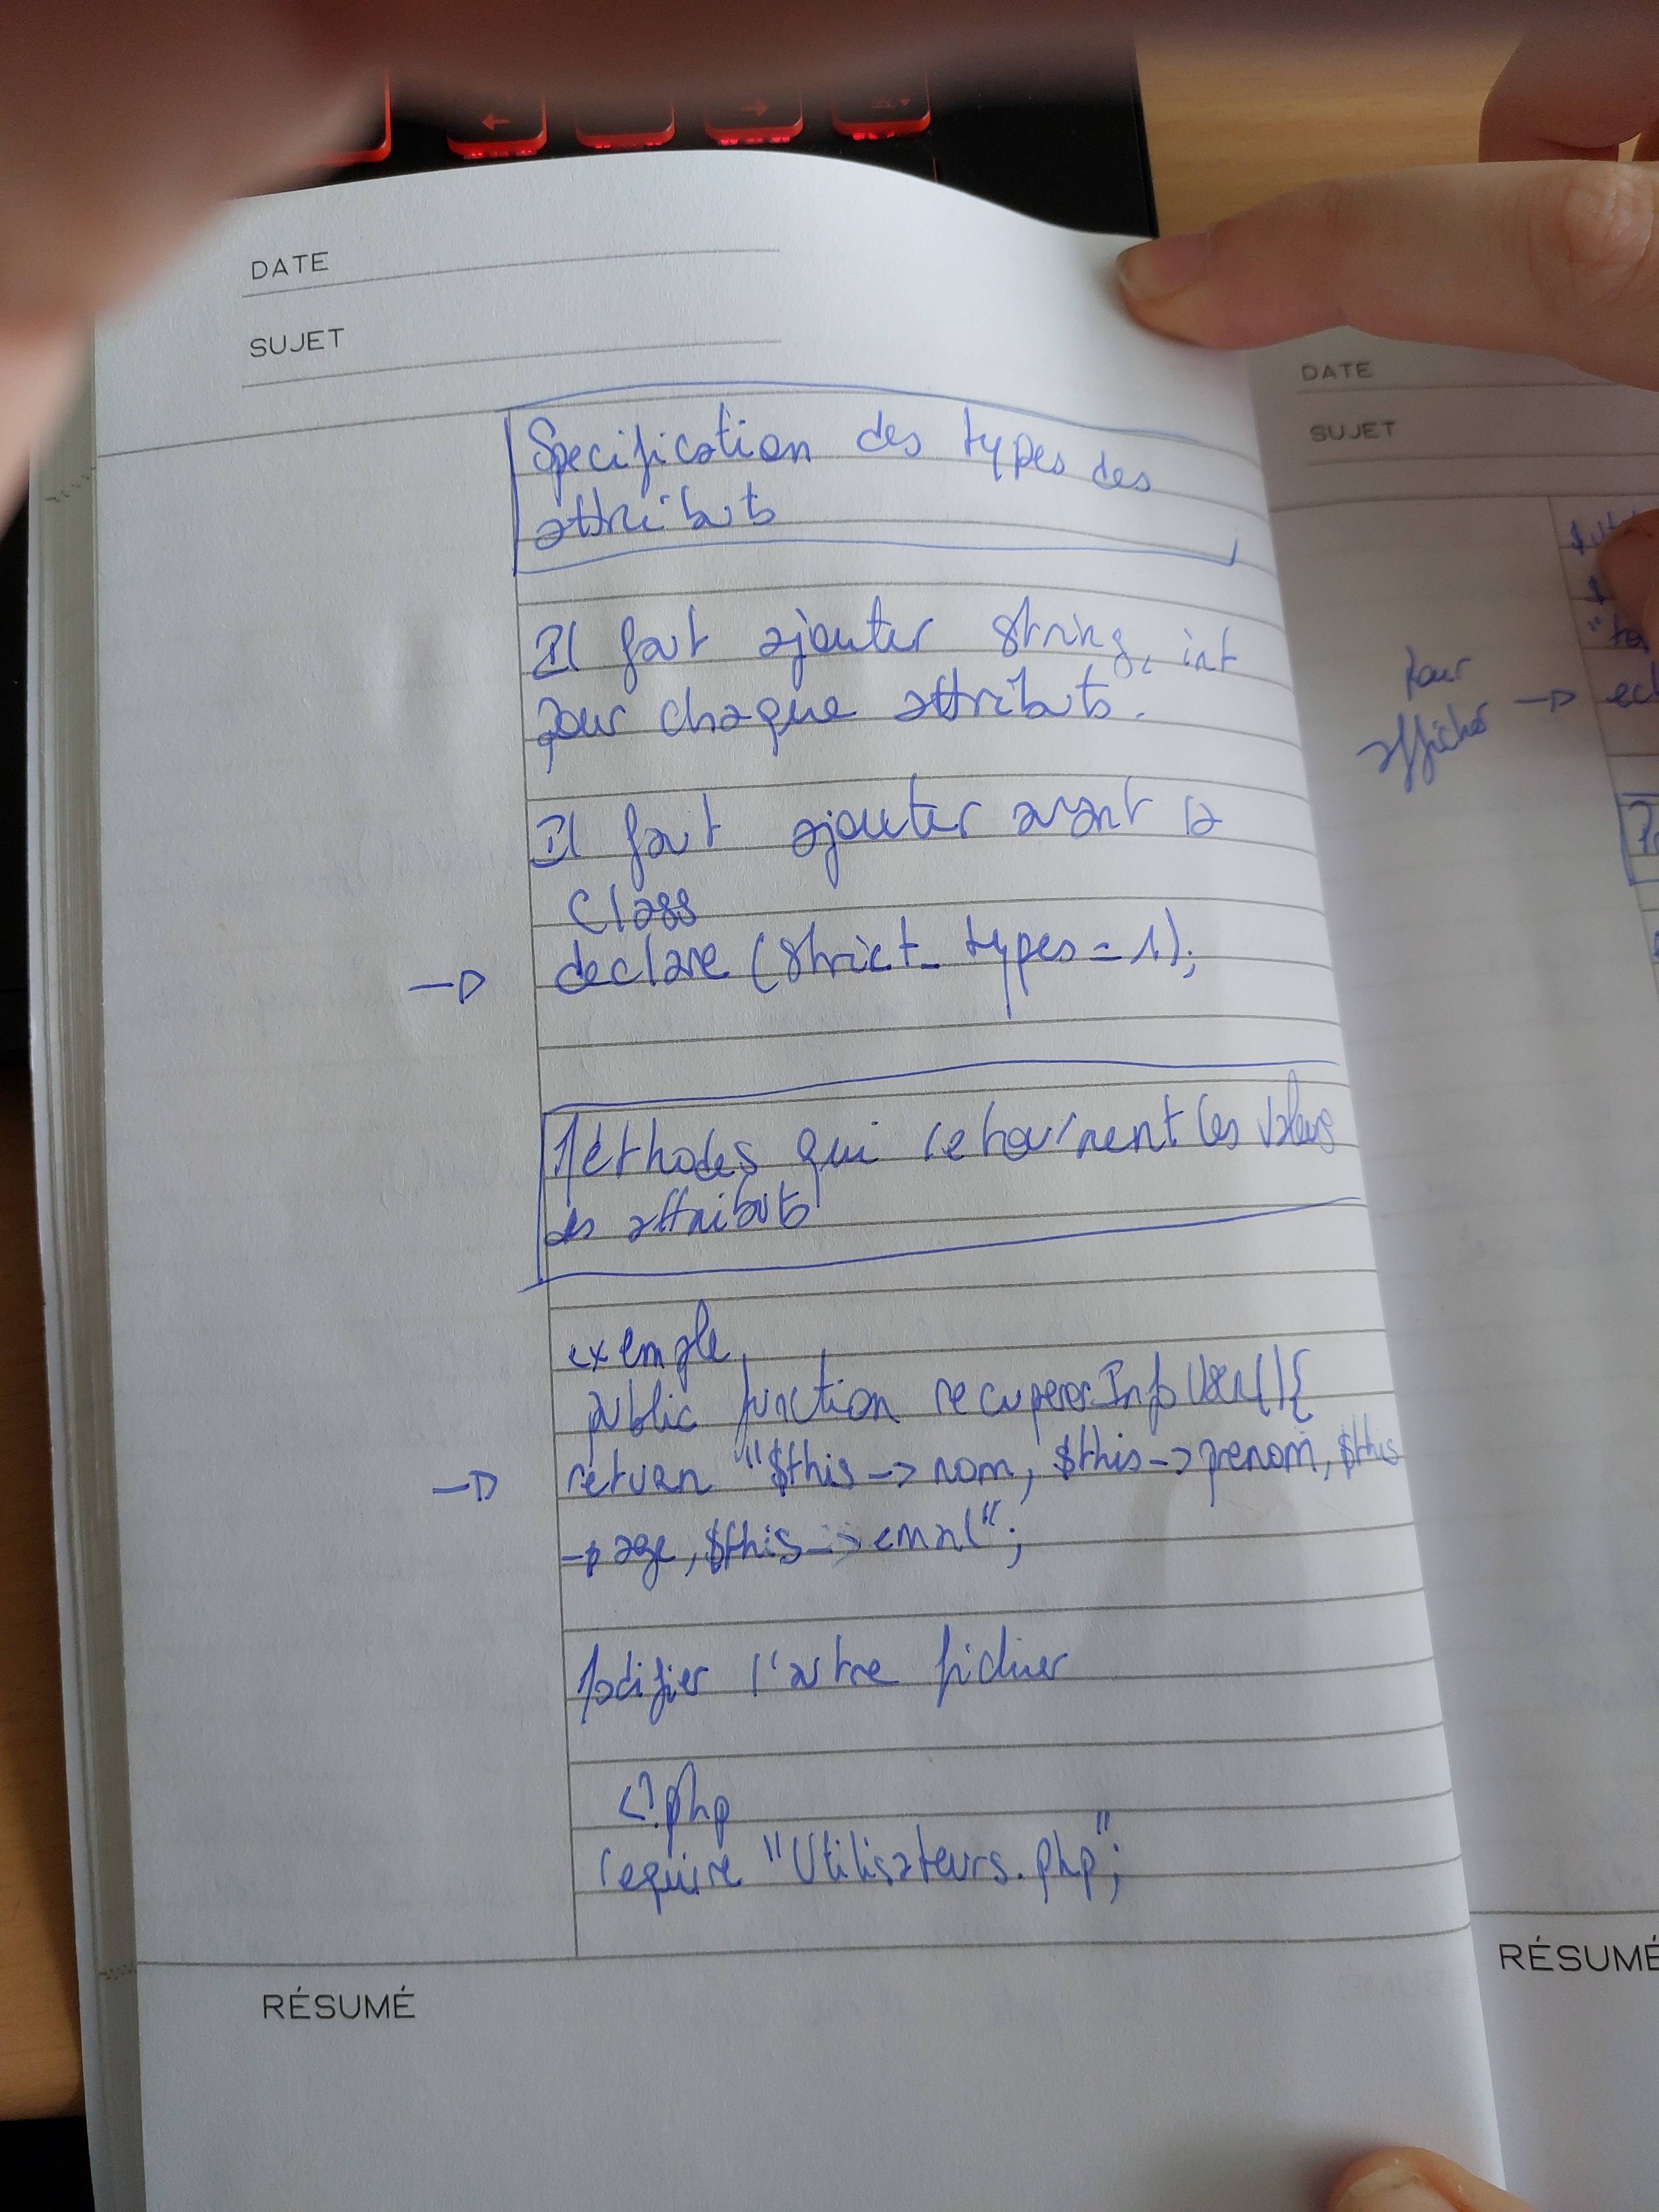 DATE
SUJET
Specification des types des
attributs
Il faut ajouter string, int
pour chaque attributs.
Il faut ajouter avant la
class
→ declare (strict_types = 1);
Méthodes qui retournent les valeurs
des attributs
exemple
public function recupererInfoUser(){
→ return "$this -> nom, $this -> prenom, $this
-> age, $this -> email";
Modifier l'autre fichier
<?php
require "Utilisateurs.php";
RÉSUMÉ
DATE
SUJET
pour
afficher →
RÉSUMÉ